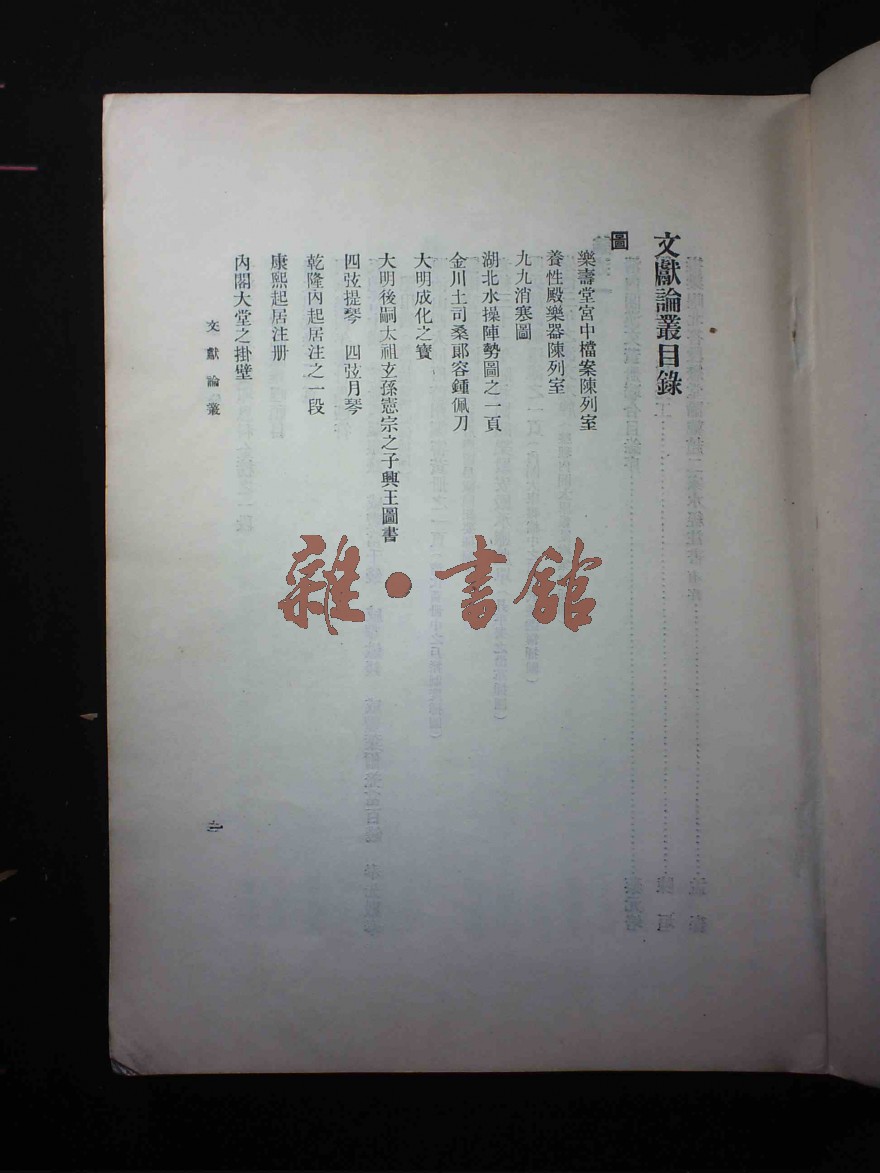 文獻論叢目錄
圖
樂壽堂宮中檔案陳列室
養性殿樂器陳列室
九九消寒圖
湖北水操陣勢圖之一頁
金川土司桑郎容鍾佩刀
大明成化之寶
大明後嗣太祖玄孫憲宗之子興王圖書
四弦提琴　四弦月琴
乾隆內起居注之一段
康熙起居注册
內閣大堂之掛壁
文獻論叢
一
雜·書館